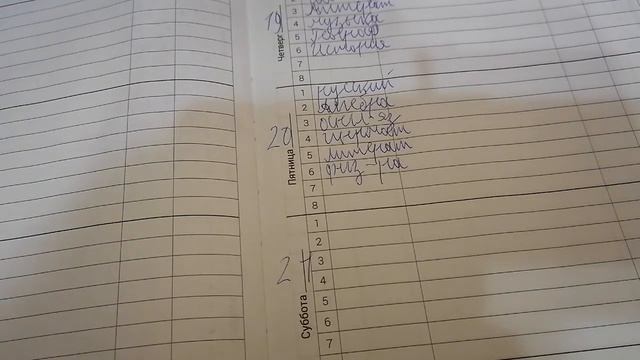 19
Четверг
3 литерат
4 музыка
5 географ
6 история
7
8
20
Пятница
1 русский
2 алгебра
3 англ-яз
4 информат
5 литерат
6 физ-ра
7
8
21
Суббота
1
2
3
4
5
6
7